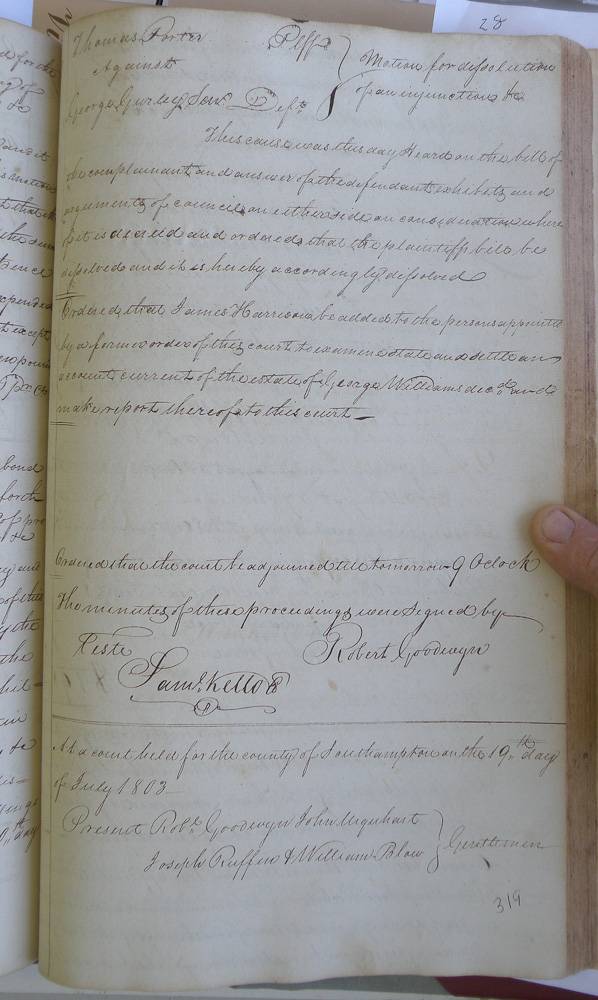 28
Thomas Porter Plff
Against
George Gurley Senr Deft
Motion for dissolution
of an injunction &c
This cause was this day Heard on the bill of
the complainant and answer of the defendant exhibits and
arguments of council on either side on consideration where
of it is decreed and ordered that the plaintiffs bill be
dissolved and it is hereby accordingly dissolved
Ordered that James Harrison be added to the persons appointed
by a former order of this court to examine state and settle an
account current of the estate of George Williams decd and
make report thereof to this court
Ordered that the court be adjourned till tomorrow 9 Oclock
The minutes of these proceedings were signed by
Teste Robert Goodwyn
Saml Kello
At a court held for the county of Southampton on the 19th day
of July 1803
Present Robt Goodwyn John Urquhart
Joseph Ruffin & William Blow
Gentlemen
319